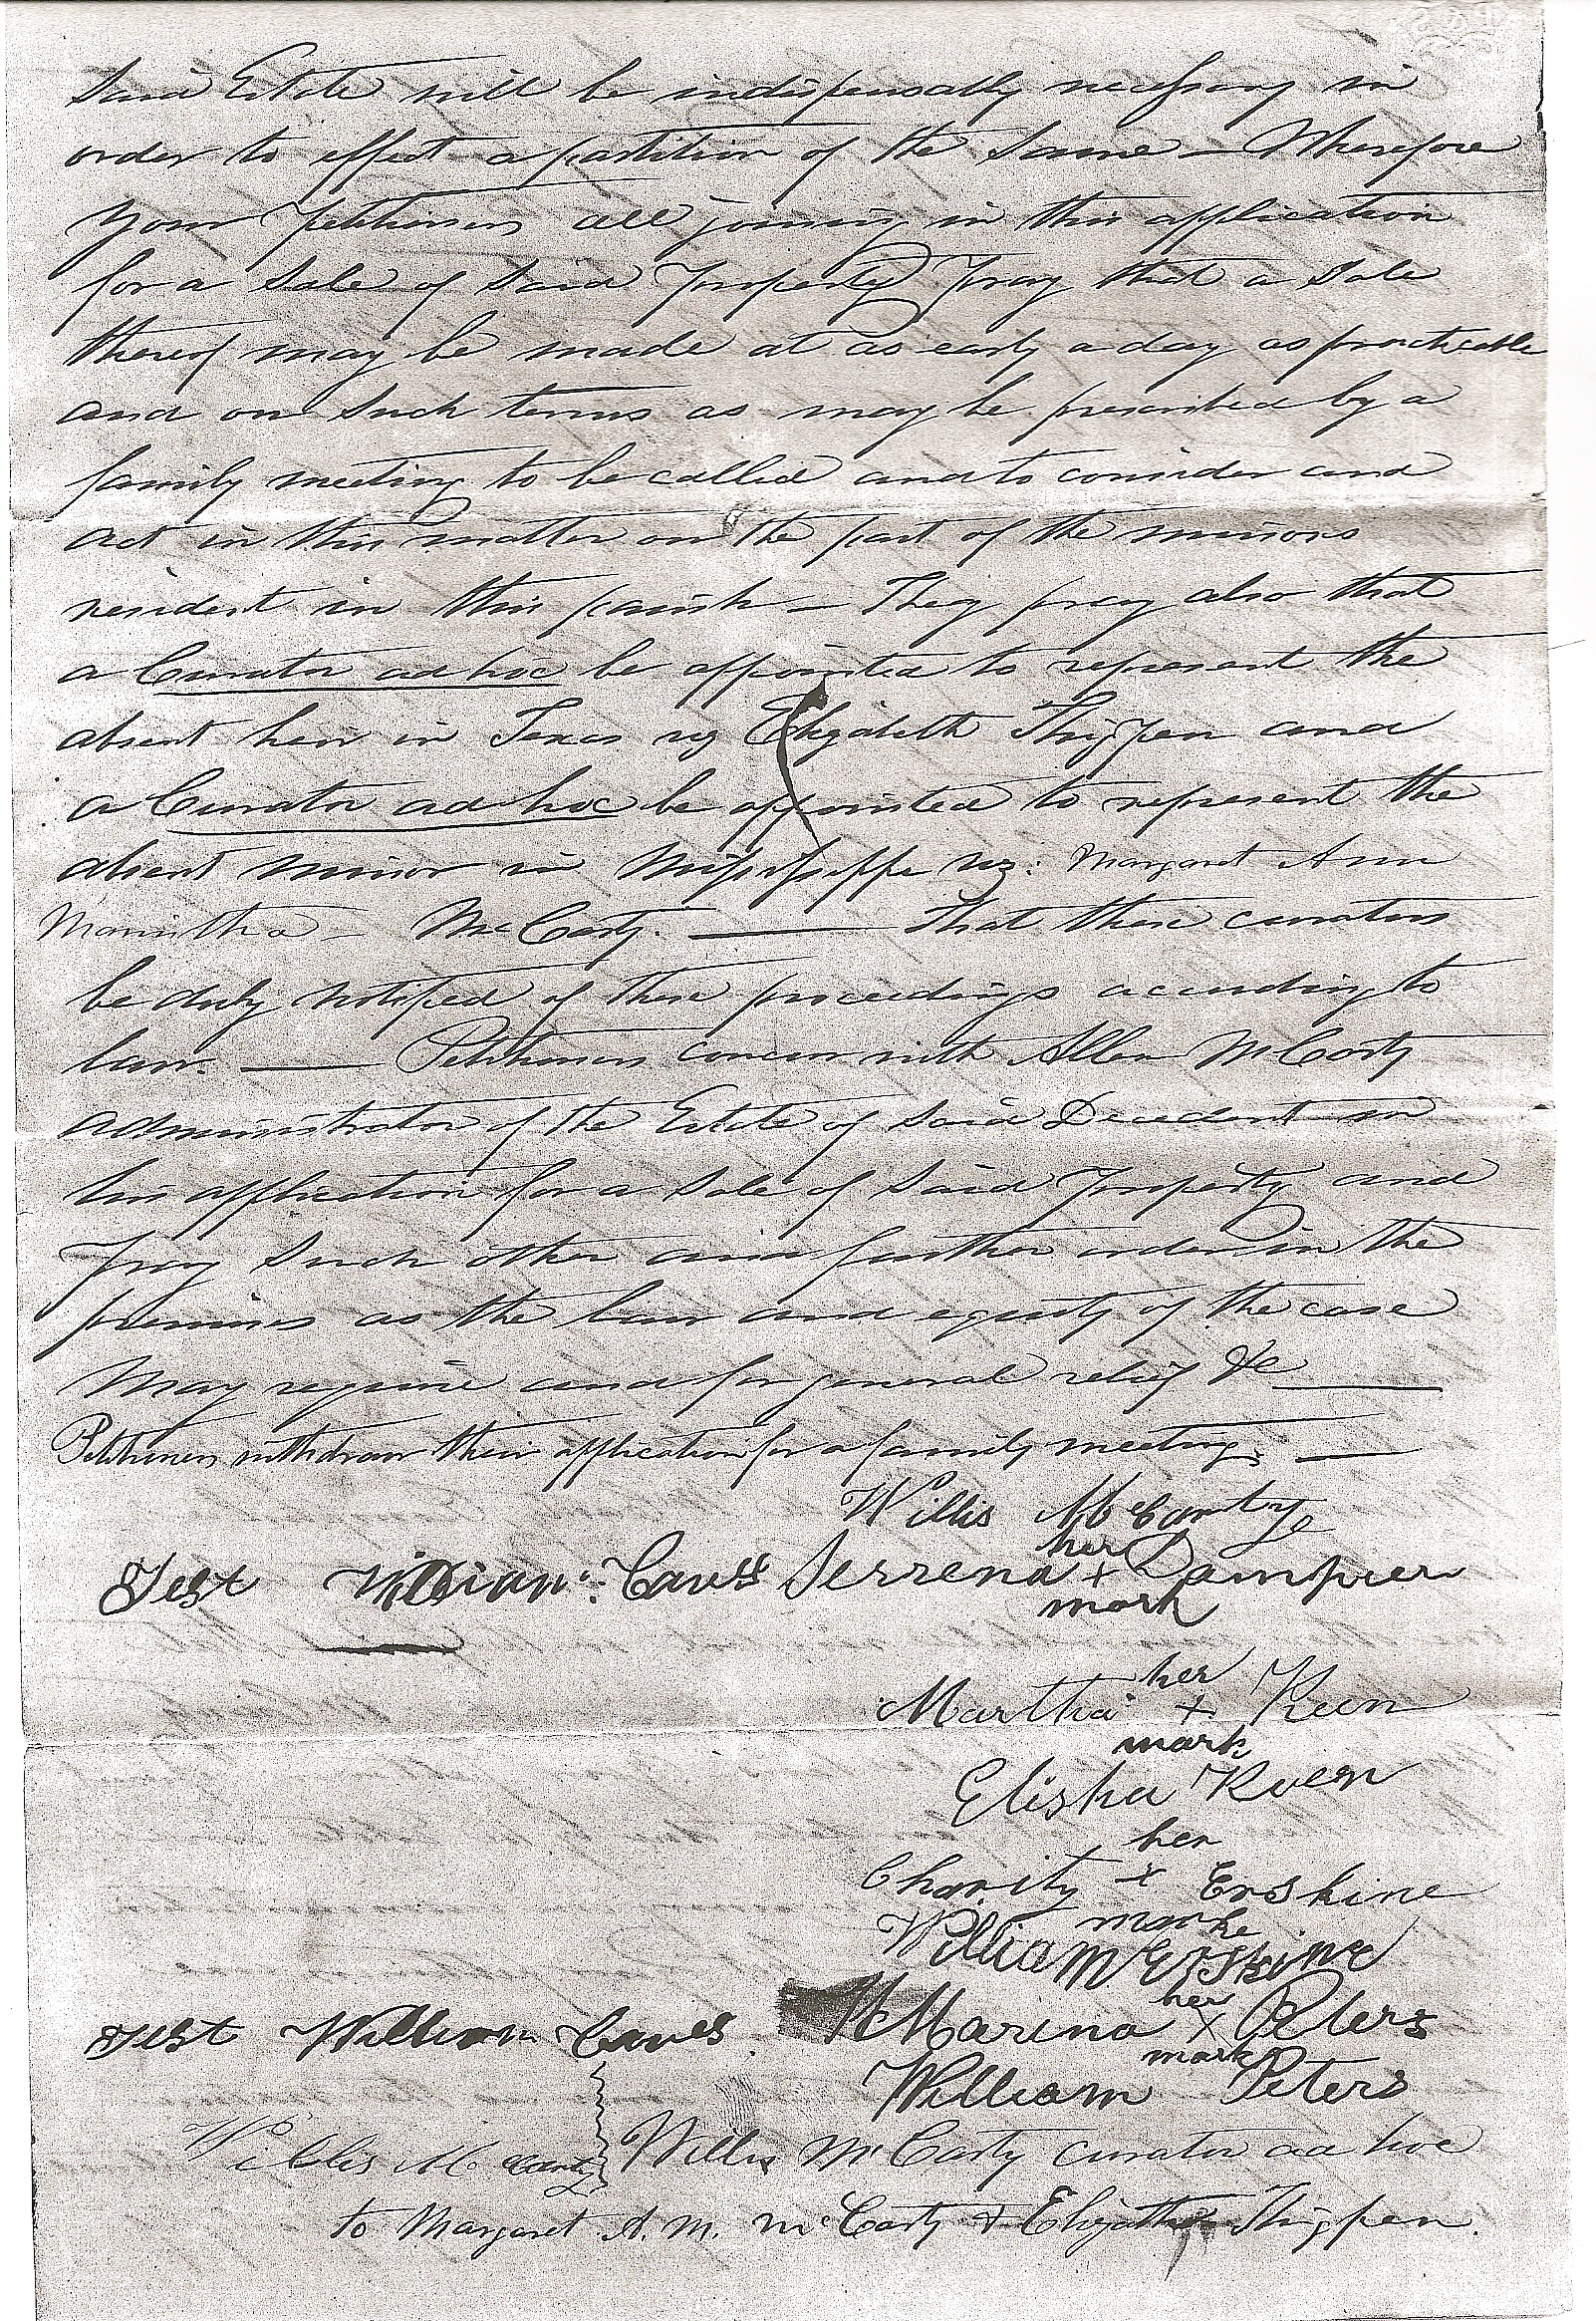 Said Estate will be indispensably necessary in
order to effect a partition of the same — Wherefore
your petitioners all joining in this application
for a sale of said Property Pray that a sale
thereof may be made at as early a day as practicable
and on such terms as may be prescribed by a
family meeting to be called and to consider and
act in this matter on the part of the minors
resident in this parish — They pray also that
a Curator ad hoc be appointed to represent the
absent heir in Texas viz Elizabeth Thigpen and
a Curator ad hoc be appointed to represent the
absent minor in Mississippi viz: Margaret Ann
Manintha — McCarty. — That these curators
be duly notified of these proceedings according to
law. — Petitioners concur with Allen McCarty
administrator of the Estate of said Decedent in
his application for a sale of said Property and
Pray such other and further orders in the
premises as the law and equity of the case
May require and for general relief &c —
Petitioners withdraw their application for a family meeting. —
Willis McCarty
her
Test William Caves Serrena + Dampier
mark
her
Martha + Keen
mark
Elisha Keen
her
Charity + Erskine
marke
William Erskine
her
Test William Caves Marina X Peters
mark
William Peters
Willis McCarty Willis McCarty curator ad hoc
to Margaret A. M. McCarty & Elizabeth Thigpen.